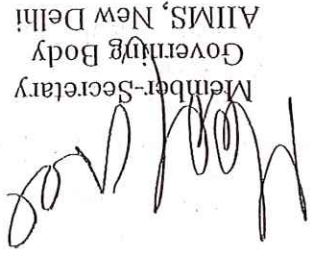 Member-Secretary
Governing Body
AIIMS, New Delhi